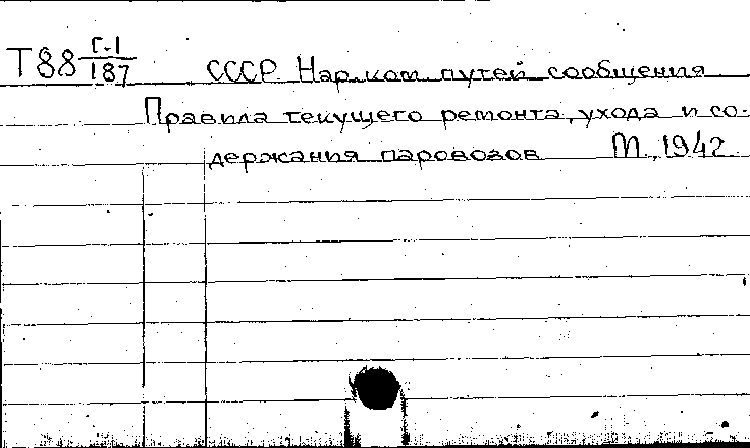 Т88 Г-1/187 СССР. Нар. ком. путей сообщения
Правила текущего ремонта, ухода и со-
держания паровозов М., 1942